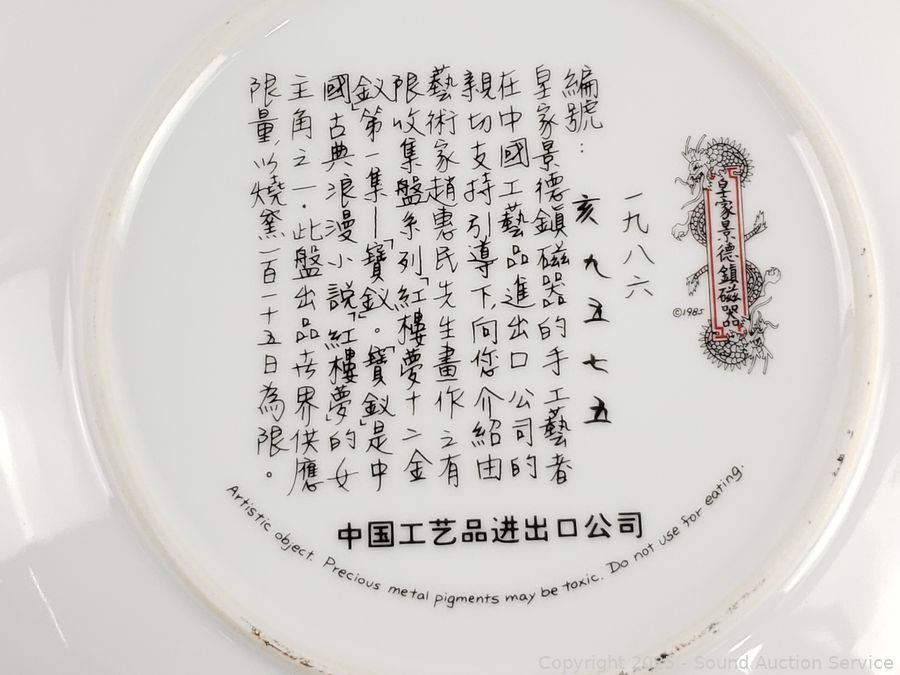 皇家景德鎮磁器
©1985
一九八六
編號：亥九五七五
皇家景德鎮磁器的手工藝者
在中國工藝品進出口公司的
親切支持引導下，向您介紹由
藝術家趙惠民先生畫作之有
限收集盤系列「紅樓夢十二金
釵」第一集—「寶釵」。「寶釵」是中
國古典浪漫小說「紅樓夢」的女
主角之一．此盤出品世界供應
限量，以燒窯一百一十五日為限。
中国工艺品进出口公司
Artistic object. Precious metal pigments may be toxic. Do not use for eating.
Copyright 2025 - Sound Auction Service